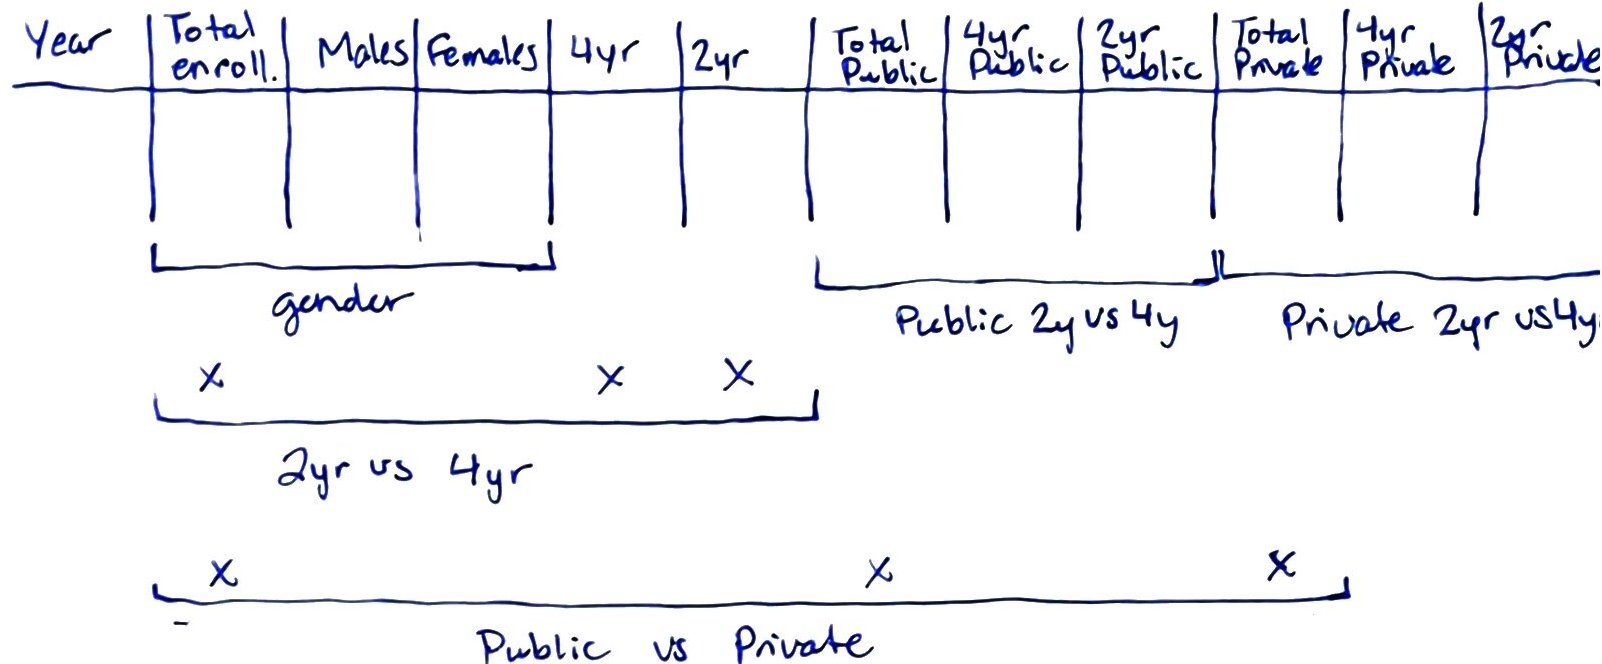 Year
Total
enroll.
Males
Females
4yr
2yr
Total
Public
4yr
Public
2yr
Public
Total
Private
4yr
Private
2yr
Private
gender
Public 2y vs 4y
Private 2yr vs 4y
x x x
2yr vs 4yr
x x x
Public vs Private